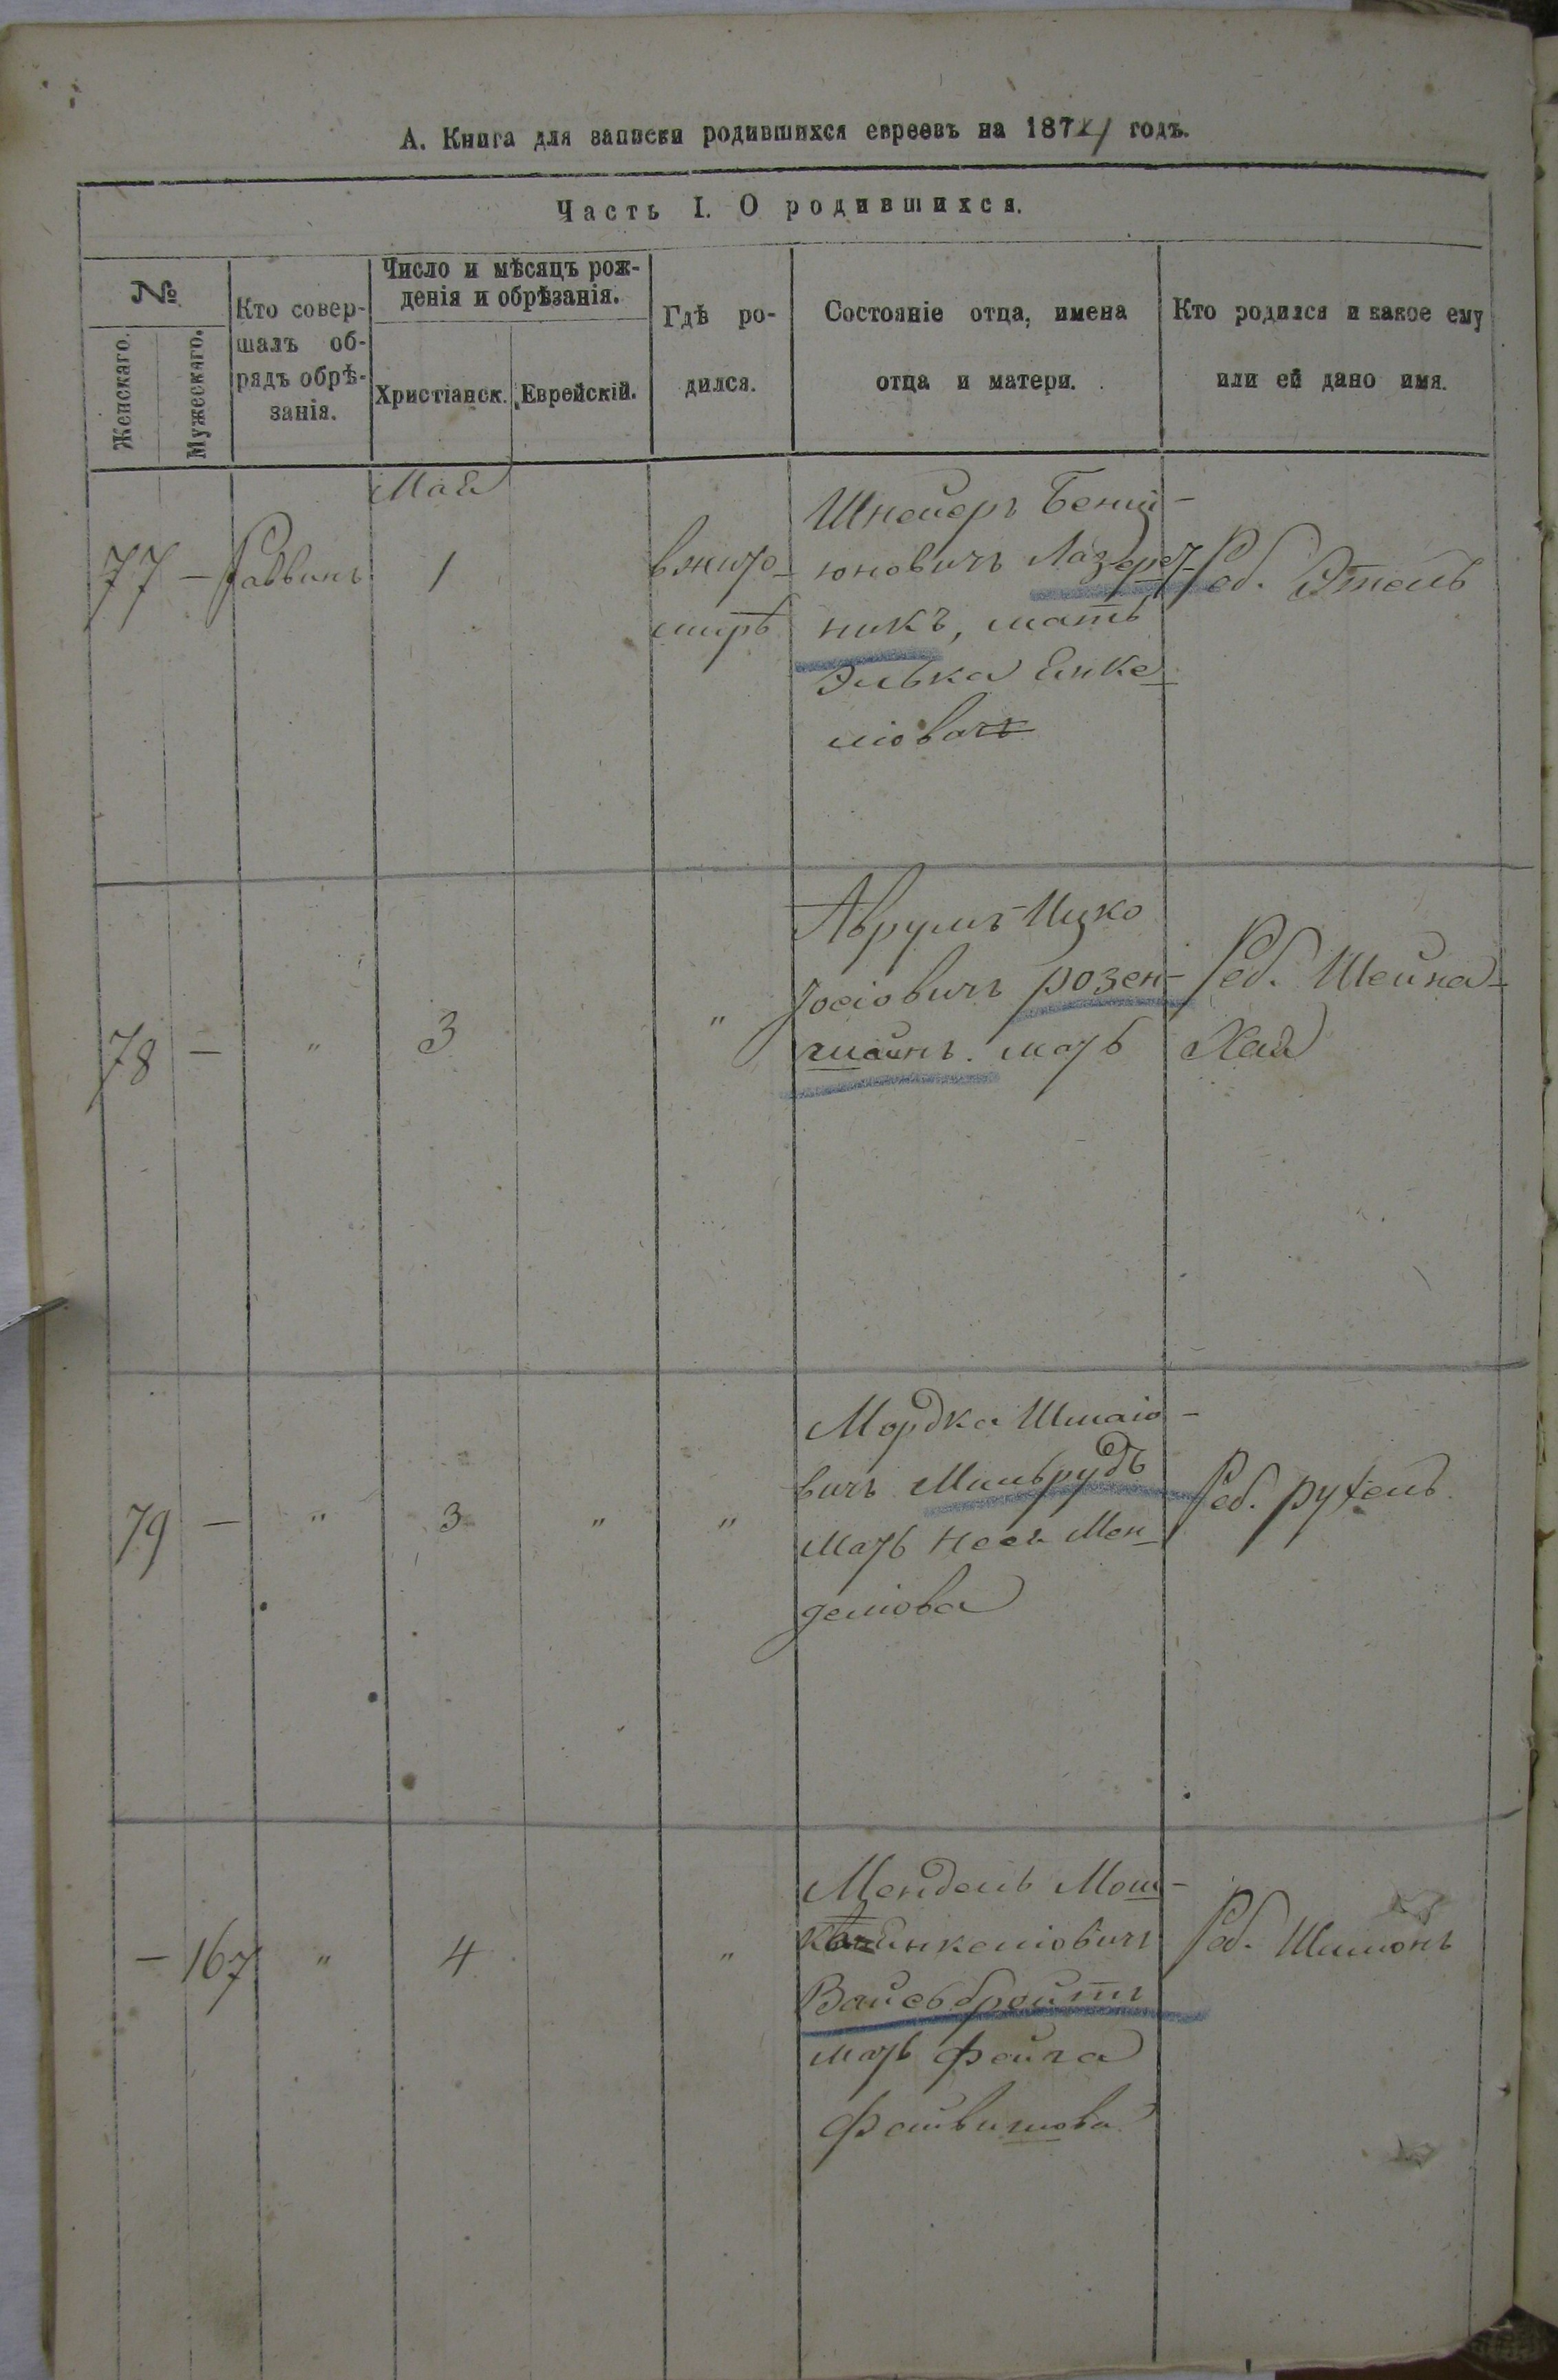 А. Книга для записки родившихся евреевъ на 1874 годъ.
Часть I. О родившихся.
№
Женскаго.
Мужескаго.
Кто совер-
шалъ об-
рядъ обрѣ-
занія.
Число и мѣсяцъ рож-
денія и обрѣзанія.
Христіанск.
Еврейскій.
Гдѣ ро-
дился.
Состояніе отца, имена
отца и матери.
Кто родился и какое ему
или ей дано имя.
Мая
77 — Раввинъ 1
вжито-
мирѣ
Шнеиеръ Бенци-
юновичъ Лазерет-
никъ, мать
Элька Енке-
ліова
Роб. Этель
78 — " 3 "
Аврумъ-Ицко
Іосіовичъ розен-
матъ
Роб. Шейна-
Хая
79 — " 3 " "
Мордка Шмаіо-
вичъ Мильрудъ
мать Нося Мен-
деліова
Роб. рухель
— 167 " 4 "
Мендель Мош-
ко Енкеліовичъ
Вайсбройтъ
мать Фейга
Файвишова
Роб. Шимонъ